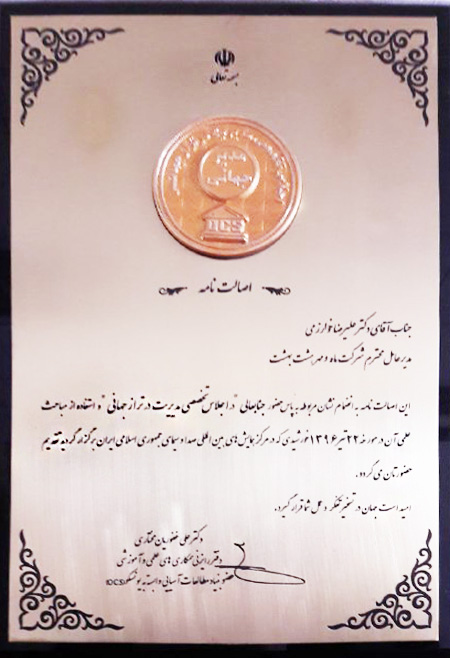 بسمه تعالی
مدیر
جهانی
OCS
اصالت نامه
جناب آقای دکتر علیرضا خوارزمی
مدیرعامل محترم شرکت ماه و مهر هشت بهشت
این اصالت نامه به انضمام نشان مربوطه به پاس حضور جنابعالی "در اجلاس تخصصی مدیریت در تراز جهانی" و استفاده از مباحث
علمی آن در مورخه ۲۲ تیر ۱۳۹۶ خورشیدی که در مرکز همایش های بین المللی صدا و سیمای جمهوری اسلامی ایران برگزار گردید تقدیم
حضورتان می گردد.
امید است جهان در تسخیر تفکر و عمل شما قرار گیرد.
دکتر علی غفوریان مختاری
دفتر رایزنی همکاری های علمی و آموزشی
عضو بنیاد مطالعات آسیایی وابسته به یونسکو (OCS)